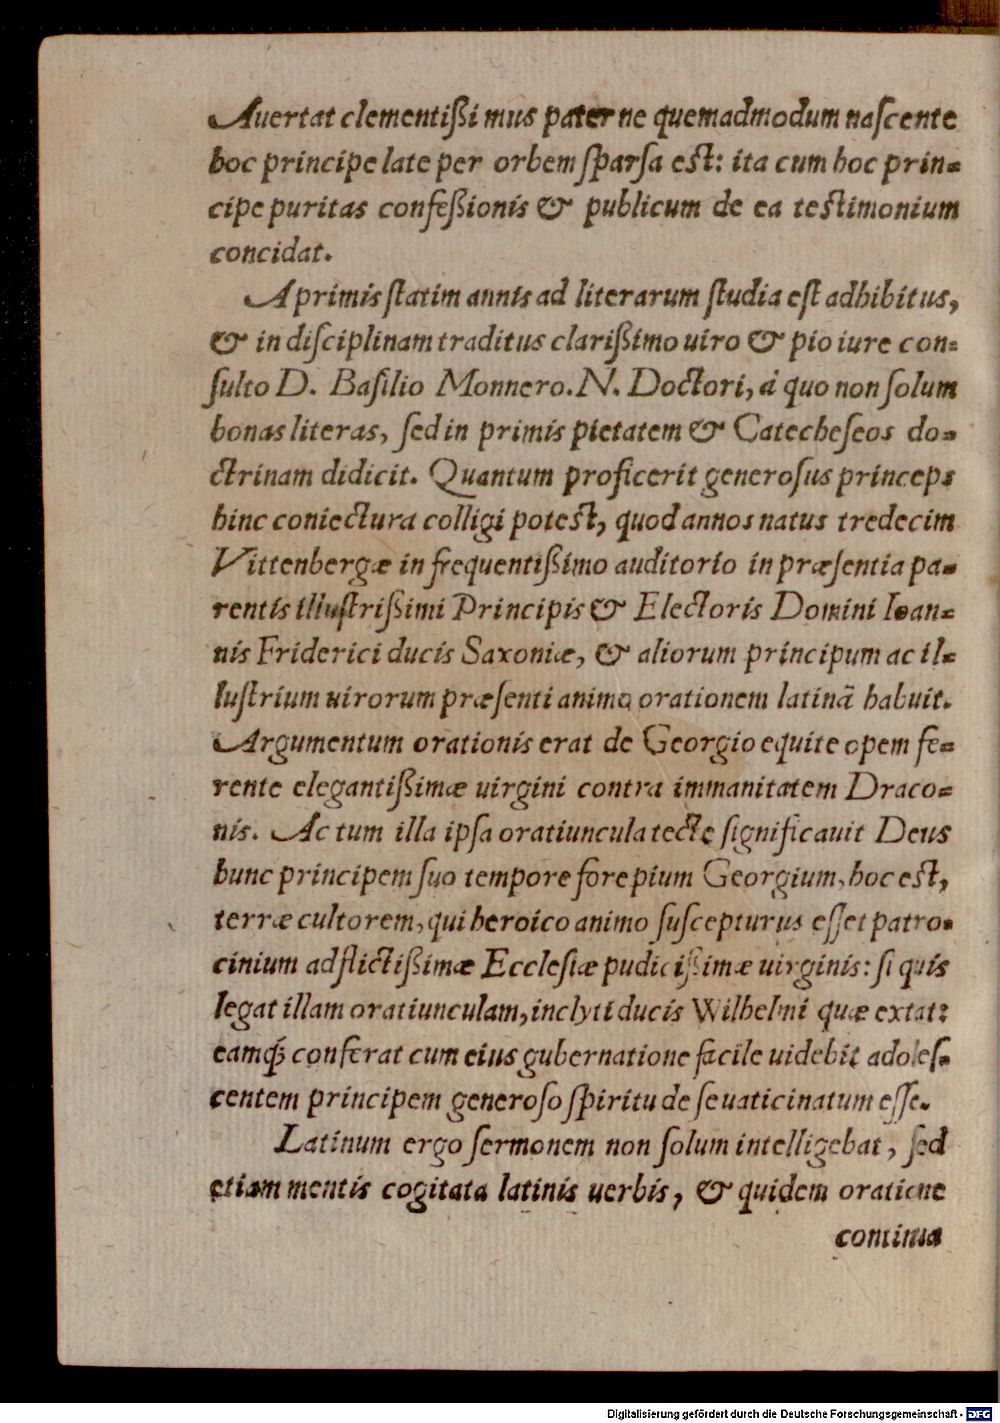 Auertat clementißimus pater ne quemadmodum naſcente
hoc principe late per orbem ſparſa eſt: ita cum hoc prin=
cipe puritas confeßionis & publicum de ea teſtimonium
concidat.
A primis ſtatim annis ad literarum ſtudia eſt adhibitus,
& in diſciplinam traditus clarißimo uiro & pio iure con=
ſulto D. Baſilio Monnero. N. Doctori, à quo non ſolum
bonas literas, ſed in primis pietatem & Catecheſeos do=
ctrinam didicit. Quantum proficerit generoſus princeps
hinc coniectura colligi poteſt, quod annos natus tredecim
Vittenbergæ in frequentißimo auditorio in præſentia pa=
rentis illuſtrißimi Principis & Electoris Domini Ioan=
nis Friderici ducis Saxoniæ, & aliorum principum ac il=
luſtrium uirorum præſenti animo orationem latinā habuit.
Argumentum orationis erat de Georgio equite opem fe=
rente elegantißimæ uirgini contra immanitatem Draco=
nis. Ac tum illa ipſa oratiuncula tecte ſignificauit Deus
hunc principem ſuo tempore fore pium Georgium, hoc eſt,
terræ cultorem, qui heroico animo ſuſcepturus eſſet patro=
cinium adflictißimæ Eccleſiæ pudicißimæ uirginis: ſi quis
legat illam oratiunculam, inclyti ducis Wilhelmi quæ extat:
eamq́; conferat cum eius gubernatione facile uidebit adoleſ=
centem principem generoſo ſpiritu de ſe uaticinatum eſſe.
Latinum ergo ſermonem non ſolum intelligebat, ſed
etiam mentis cogitata latinis uerbis, & quidem oratione
continua
Digitalisierung gefördert durch die Deutsche Forschungsgemeinschaft - DFG